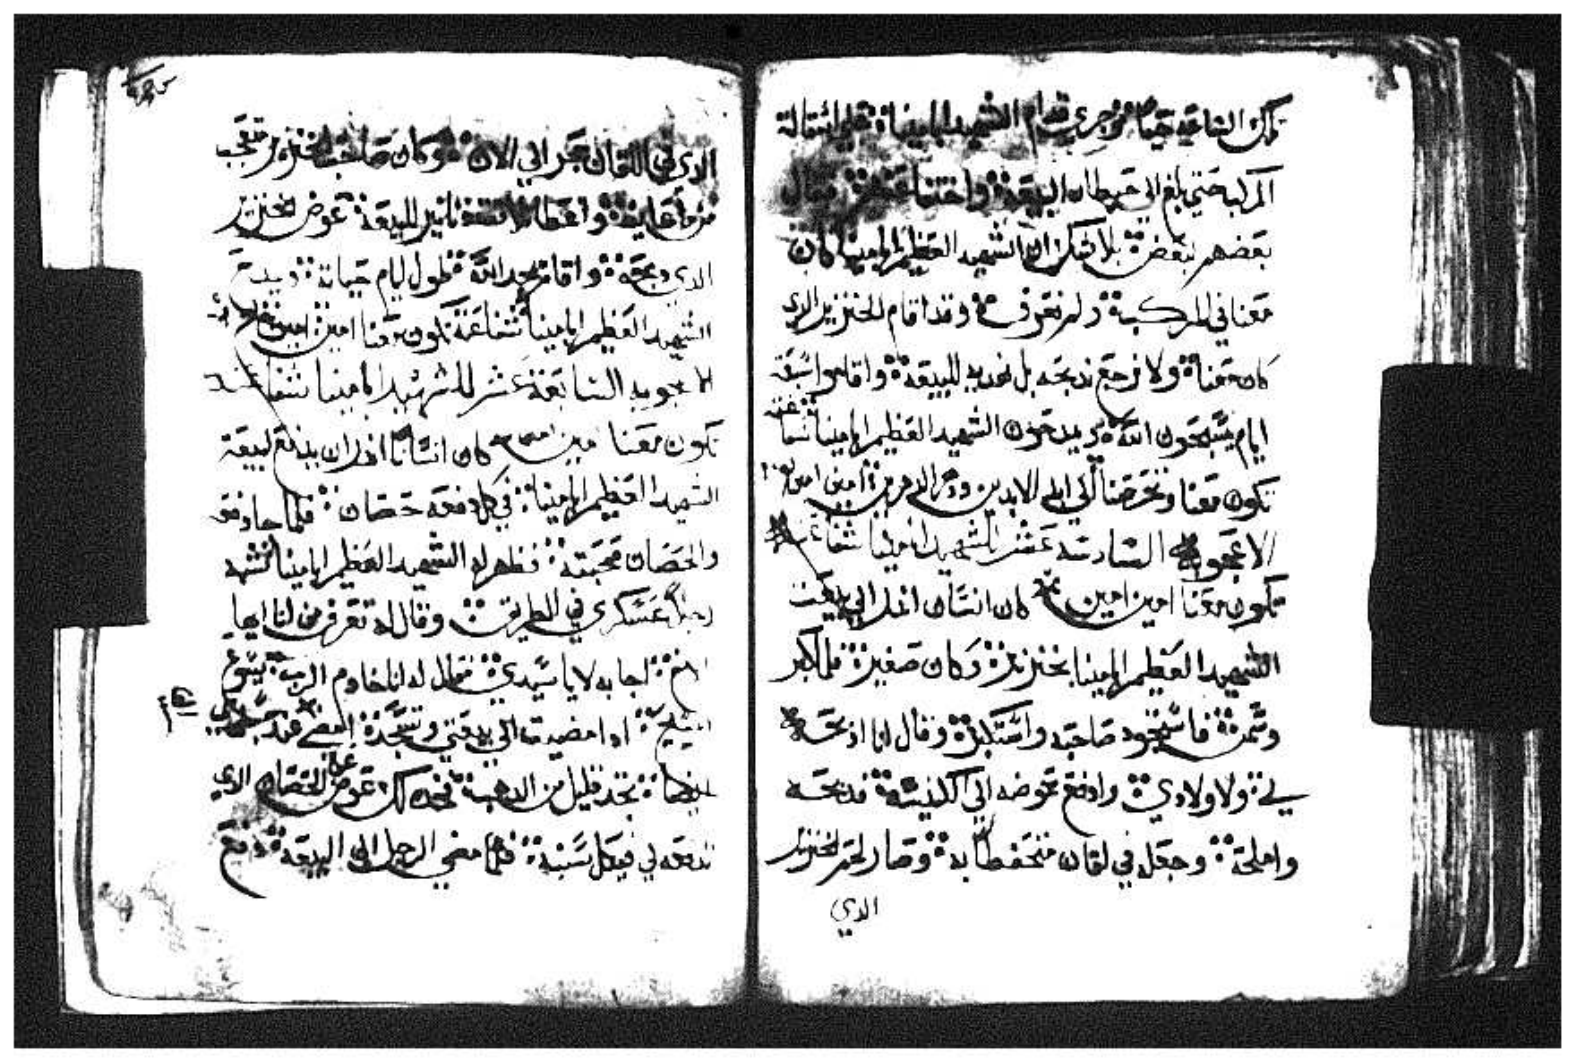 تلك الساعه جري قدام الشهيد ابامينا
المركب حتي بلغ الي حيطان البيعة وقال
بعضهم لبعض بلا شك ان الشهيد العظيم ابامينا كان
معنا في المركب ولم نعرف وقد اقام الخنزير الدي
كان معنا ولا نرجع ندبحه بل نهديه للبيعة واقاموا سبعة
ايام يسبحون الله ويمدحون الشهيد العظيم ابامينا شفاعته
تكون معنا وتحرصنا الي ابد الابدين ودهر الداهرين امين امين
الاعجوبه السادسه عشر للشهيد ابامينا شفاعته
تكون معنا امين امين كان انسان اندر الي بيعت
الشهيد العظيم ابامينا بخنزيرة وكان صغيرة فلما كبر
وسمن صاحبه واستكبره وقال انا ادبحه
لي ولاولادي وادفع عوضه الي الكنيسة فدبحه
واملحه وجعله في لقان متحفظا به وصار لحم الخنزير
الدي
الدي في اللقان حجر الي الان وكان صاحب الخنزير متعجب
واعطا دنانير للبيعة عوض الخنزير
الدي دبحه واقام يمجد الله طول ايام حياته ويمدح
الشهيد العظيم ابامينا شفاعته تكون معنا امين امين
الاعجوبه السابعة عشر للشهيد ابامينا شفاعته
تكون معنا امين كان انسانا اندر ان يدفع لبيعة
الشهيد العظيم ابامينا في كل دفعه حصان فلما جا دفعه
والحصان صحبته فظهر له الشهيد العظيم ابامينا شبه
رجلا عسكري في الطريق وقال له تعرف من انا ايها
الاخ اجابه لا يا سيدي فقال له انا خادم الرب يسوع
المسيح ادا مضيت الي بيعتي وتسجد امضي عند
ايضا تجد قليل من الدهب تجده لك عوض الحصان الدي
تدفعه لي في كل سنة فلما مضي الرجل الي البيعة دفع